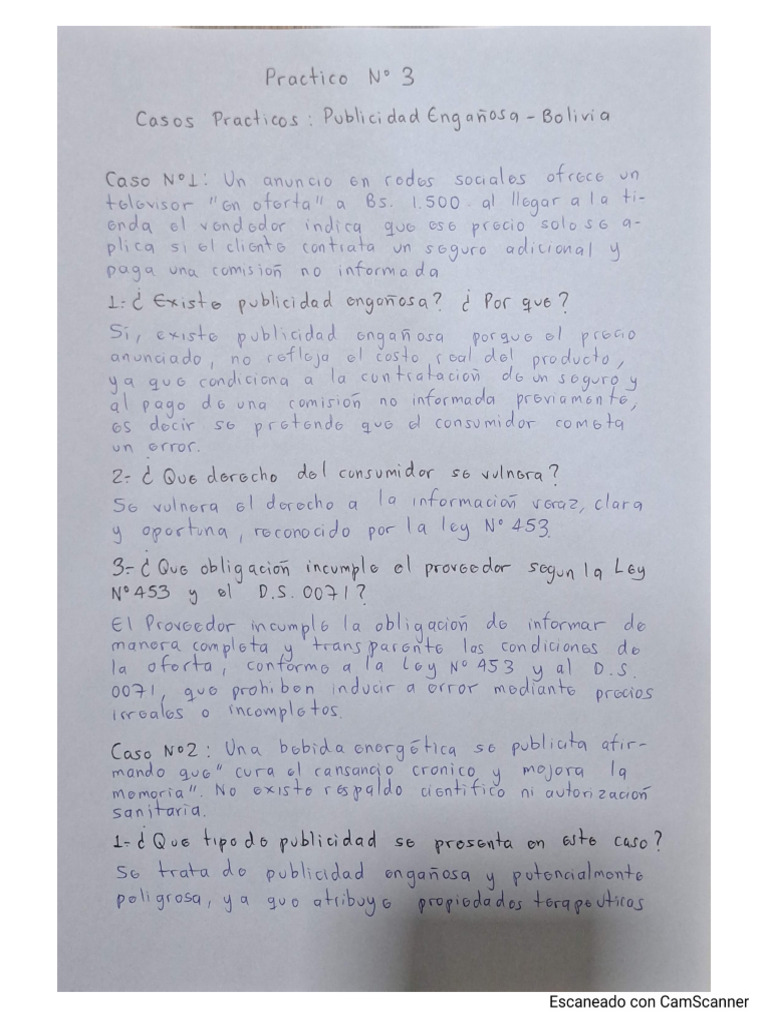 Practico N° 3
Casos Practicos: Publicidad Engañosa - Bolivia
Caso N°1: Un anuncio en redes sociales ofrece un
televisor "en oferta" a Bs. 1.500. al llegar a la ti-
enda el vendedor indica que ese precio solo se a-
plica si el cliente contrata un seguro adicional y
paga una comisión no informada
1.- ¿Existe publicidad engañosa? ¿Por que?
Si, existe publicidad engañosa porque el precio
anunciado, no refleja el costo real del producto,
ya que condiciona a la contratación de un seguro y
al pago de una comisión no informada previamente,
es decir se pretende que el consumidor cometa
un error.
2.- ¿Que derecho del consumidor se vulnera?
Se vulnera el derecho a la información veraz, clara
y oportuna, reconocido por la ley N° 453.
3.- ¿Que obligación incumple el proveedor segun la Ley
N° 453 y el D.S. 0071?
El Proveedor incumple la obligación de informar de
manera completa y transparente las condiciones de
la oferta, conforme a la Ley N° 453 y al D.S.
0071, que prohiben inducir a error mediante precios
irreales o incompletos.
Caso N°2: Una bebida energética se publicita afir-
mando que "cura el cansancio cronico y mejora la
memoria". No existe respaldo cientifico ni autorización
sanitaria.
1.- ¿Que tipo de publicidad se presenta en este caso?
Se trata de publicidad engañosa y potencialmente
peligrosa, ya que atribuye propiedades terapeuticas
Escaneado con CamScanner